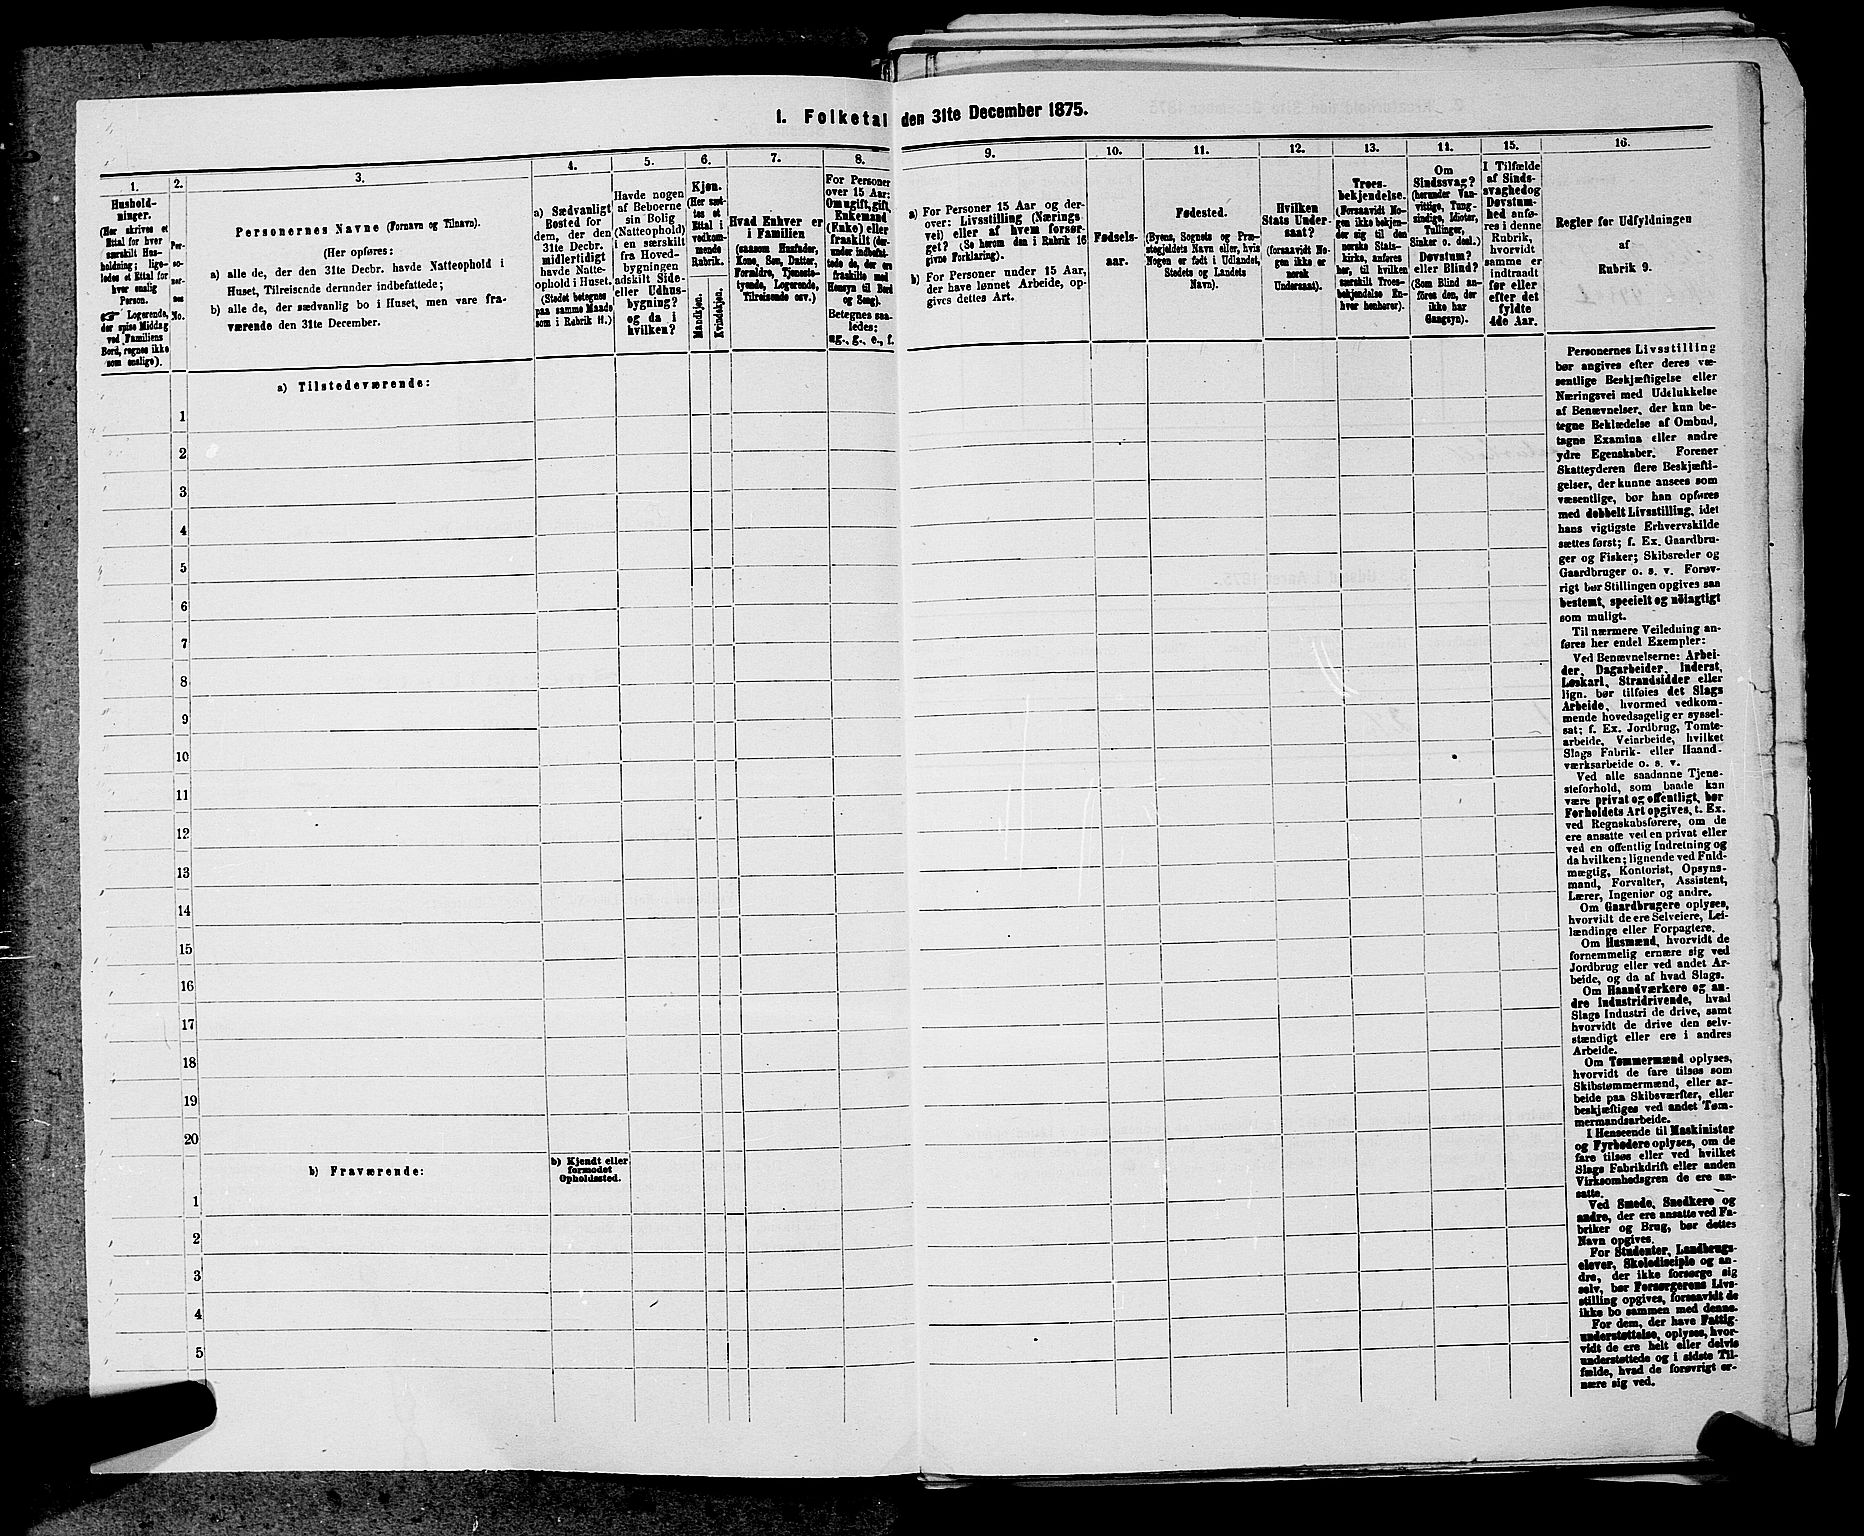 1. Folketal den 31te December 1875.
1.
Hushold-
ninger.
(Her skrives et
Ettal for hver
særskilt Hus-
holdning; lige-
ledes et Ettal for
hver enslig
Person.
Logerende,
der spise Middag
ved Familiens
Bord, regnes ikke
som enslige).
2.
Per-
so-
ner-
nes
No.
3.
Personernes Navne (Fornavn og Tilnavn).
(Her opføres:
a) alle de, der den 31te Decbr. havde Natteophold i
Huset, Tilreisende derunder indbefattede;
b) alle de, der sædvanlig bo i Huset, men vare fra-
værende den 31te December.
4.
a) Sædvanligt
Bosted for
dem, der den
31te Decbr.
midlertidigt
havde Natte-
ophold i Huset.
(Stedet betegnes
paa samme Maade
som i Rubrik 11.)
5.
Havde nogen
af Beboerne
sin Bolig
(Natteophold)
i en særskilt
fra Hoved-
bygningen
adskilt Side-
eller Udhus-
bygning?
og da i
hvilken?
6.
Kjøn.
(Her sæt-
tes et
Ettal i
vedkom-
mende
Rubrik.
Mandkjøn.
Kvindekjøn.
7.
Hvad Enhver er
i Familien
(saasom Husfader,
Kone, Søn, Datter,
Forældre, Tjeneste-
tyende, Logerende,
Tilreisende osv.)
8.
For Personer
over 15 Aar:
Om ugift, gift,
Enkemand
(Enke) eller
fraskilt (der-
under indbefat-
tede de, der ere
fraskilte med
Hensyn til Bord
og Seng).
Betegnes saa-
ledes:
ug., g., e., f.
9.
a) For Personer 15 Aar og der-
over: Livsstilling (Nærings-
vei) eller af hvem forsør-
get? (Se herom den i Rubrik 16
givne Forklaring).
b) For Personer under 15 Aar,
der have lønnet Arbeide, op-
gives dettes Art.
10.
Fødsels-
aar.
11.
Fødested.
(Byens, Sognets og Præ-
stegjeldets Navn eller, hvis
Nogen er født i Udlandet,
Stedets og Landets
Navn).
12.
Hvilken
Stats Under-
saat?
(forsaavidt No-
gen ikke er
norsk
Undersaat).
13.
Troes-
bekjendelse.
(Forsaavidt No-
gen ikke bekjen-
der sig til den
norske Stats-
kirke, anføres
her, til hvilken
særskilt Troes-
bekjendelse En-
hver henhører).
11.
Om
Sindssvag?
(herunder Van-
vittige, Tung-
sindige, Idioter,
Tullinger,
Sinker o. desl.)
Døvstum?
eller Blind?
(Som Blind an-
føres den, der
ikke har
Gangsyn).
15.
I Tilfælde
af Sinds-
svaghed og
Døvstum-
hed anfø-
res i denne
Rubrik,
hvorvidt
samme er
indtraadt
før eller
efter det
fyldte
4de Aar.
16.
Regler for Udfyldningen
af
Rubrik 9.
a) Tilstedeværende:
1
2
3
4
5
6
7
8
9
10
11
12
13
14
15
16
17
18
19
20
b) Fraværende:
b) Kjendt eller
formodet
Opholdssted.
1
2
3
4
5
Personernes Livsstilling
bør angives efter deres væ-
sentlige Beskjæftigelse eller
Næringsvei med Udelukkelse
af Benævnelser, der kun be-
tegne Beklædelse af Ombud,
tagne Examina eller andre
ydre Egenskaber. Forener
Skatteyderen flere Beskjæfti-
gelser, der kunne ansees som
væsentlige, bør han opføres
med dobbelt Livsstilling, idet
hans vigtigste Erhvervskilde
sættes først; f. Ex. Gaardbru-
ger og Fisker; Skibsreder og
Gaardbruger o. s. v. Forøv-
rigt bør Stillingen opgives saa
bestemt, specielt og nöiagtigt
som muligt.
Til nærmere Veiledning an-
føres her endel Exempler:
Ved Benævnelserne: Arbei-
der, Dagarbeider, Inderst,
Løskarl, Strandsidder eller
lign. bør tilføies det Slags
Arbeide, hvormed vedkom-
mende hovedsagelig er syssel-
sat; f. Ex. Jordbrug, Tomte-
arbeide, Veiarbeide, hvilket
Slags Fabrik- eller Haand-
værksarbeide o. s. v.
Ved alle saadanne Tjene-
steforhold, som baade kan
være privat og offentligt, bør
Forholdets Art opgives, t. Ex.
ved Regnskabsførere, om de
ere ansatte ved en privat eller
ved en offentlig Indretning og
da hvilken; lignende ved Fuld-
mægtig, Kontorist, Opsyns-
mand, Forvalter, Assistent,
Lærer, Ingeniør og andre.
Om Gaardbrugere oplyses,
hvorvidt de ere Selveiere, Lei-
lændinge eller Forpagtere.
Om Husmænd, hvorvidt de
fornemmelig ernære sig ved
Jordbrug eller ved andet Ar-
beide, og da af hvad Slags.
Om Haandværkere og an-
dre Industridrivende, hvad
Slags Industri de drive, samt
hvorvidt de drive den selv-
stændigt eller ere i andres
Arbeide.
Om Tømmermænd oplyses,
hvorvidt de fare tilsøs som
Skibstømmermænd, eller ar-
beide paa Skibsværfter, eller
beskjæftiges ved andet Tøm-
mermandsarbeide.
I Henseende til Maskinister
og Fyrbødere oplyses, om de
fare tilsøs eller ved hvilket
Slags Fabrikdrift eller anden
Virksomhedsgren de ere an-
satte.
Ved Smede, Snedkere og
andre, der ere ansatte ved Fa-
briker og Brug, bør dettes
Navn opgives.
For Studenter, Landbrugs-
elever, Skoledisciple og an-
dre, der ikke forsørge sig
selv, bør Forsørgerens Livs-
stilling opgives, forsaavidt de
ikke bo sammen med denne.
For dem, der have Fattig-
understøttelse, oplyses, hvor-
vidt de ere helt eller delvis
understøttede og i sidste Til-
fælde, hvad de forøvrigt er-
nære sig ved.